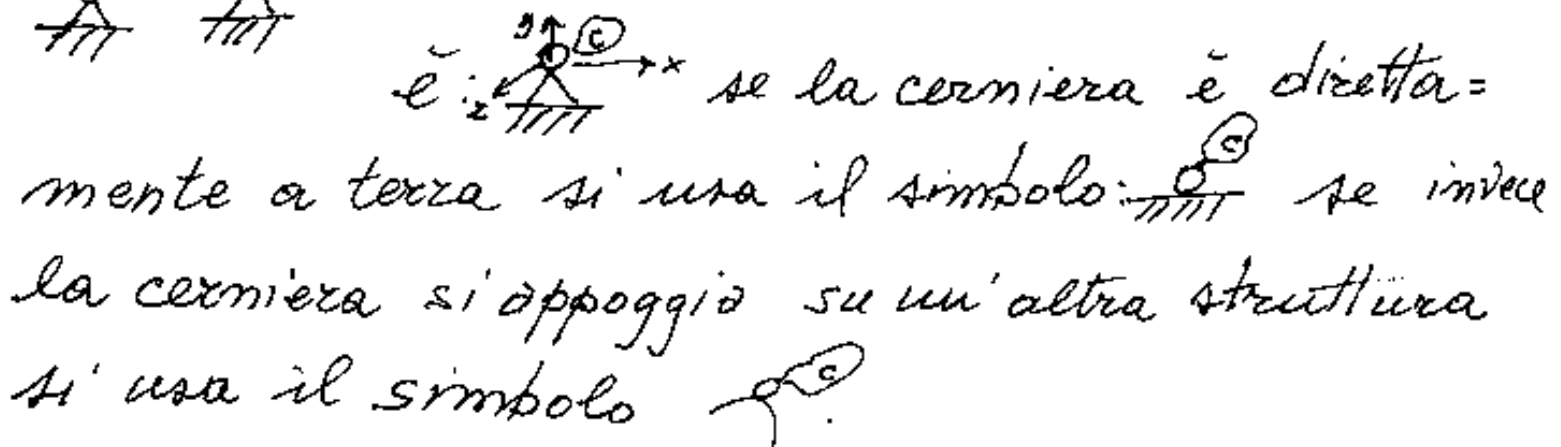 è: y C x z se la cerniera è diretta=
mente a terra si usa il simbolo: C se invece
la cerniera si appoggia su un'altra struttura
si usa il simbolo C.